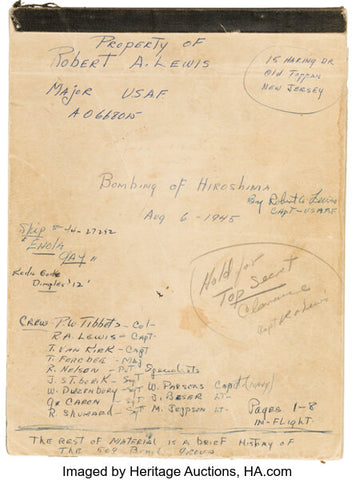 Property of
Robert A. Lewis
Major USAF
AO668015
15 Haring Dr
Old Tappan
New Jersey
Bombing of Hiroshima
By Robert A. Lewis
Capt - USAAF
Aug 6 - 1945
Ship # 44-27292
"Enola
Gay"
Radio Code
Dimples '12'
Hold for
Top Secret
Clearance
Capt
Crew - P.W. Tibbets - Col -
R.A. Lewis - Capt -
T. Van Kirk - Capt
T. Ferebee - Maj
R. Nelson - Pvt
J. Stiborik - Sgt
W. Duzenbury - Sgt
G. Caron - Sgt
R. Shumard - Sgt
Specialists
W. Parsons Capt (Navy)
J. Beser Lt -
M. Jeppson Lt -
Pages 1-8
In-Flight
The rest of material is a brief history of
the 509 Bomb. Group
Imaged by Heritage Auctions, HA.com